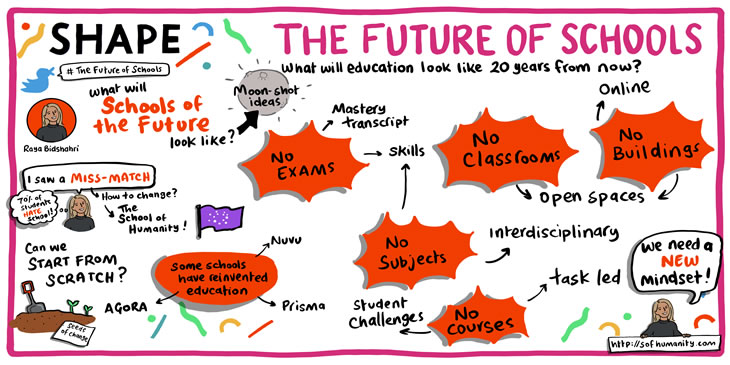 SHAPE
THE FUTURE OF SCHOOLS
What will education look like 20 years from now?
# The Future of Schools
what will
Schools of
the Future
look like?
Raya Bidshahri
Moon-shot
ideas
No
EXAMS
Mastery
transcript
Skills
No
CLASSROOMS
Online
No
BUILDINGS
open spaces
I saw a MISS-MATCH
70% of
students
HATE
school!!
How to change?
The
School of
Humanity!
No
Subjects
Interdisciplinary
Can we
START FROM
SCRATCH?
Seeds
of change
Some schools
have reinvented
education
Nuvu
AGORA
Prisma
No
COURSES
Student
Challenges
task led
We need a
NEW
mindset!
http://sofhumanity.com